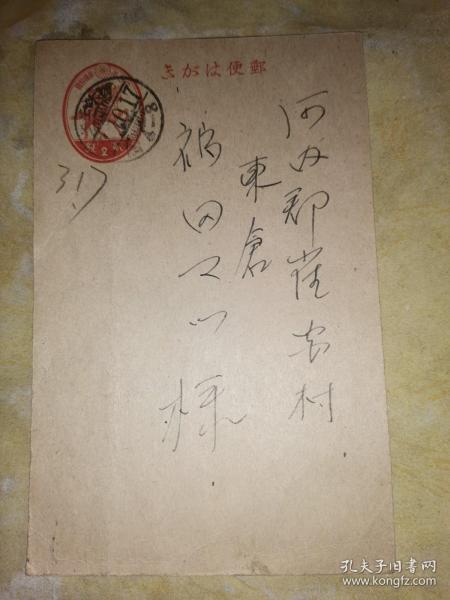 郵便はがき
河内郡雀宮村
東倉
福田
様
17
317
孔夫子旧书网
www.kongfz.com